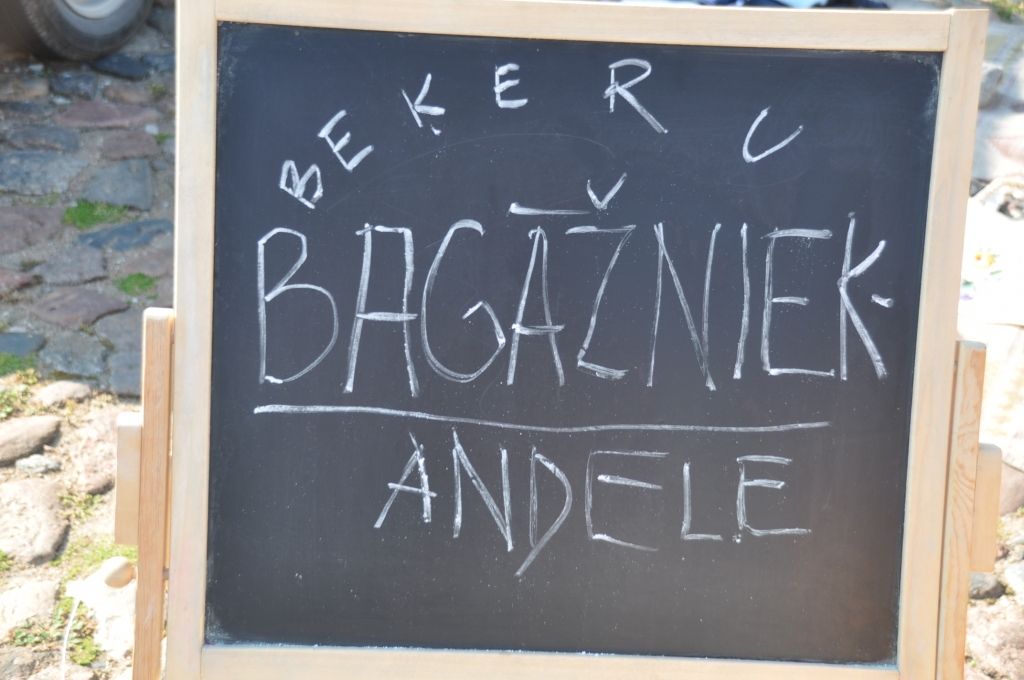 BEĶERU
BAGĀŽNIEK-
ANDELE